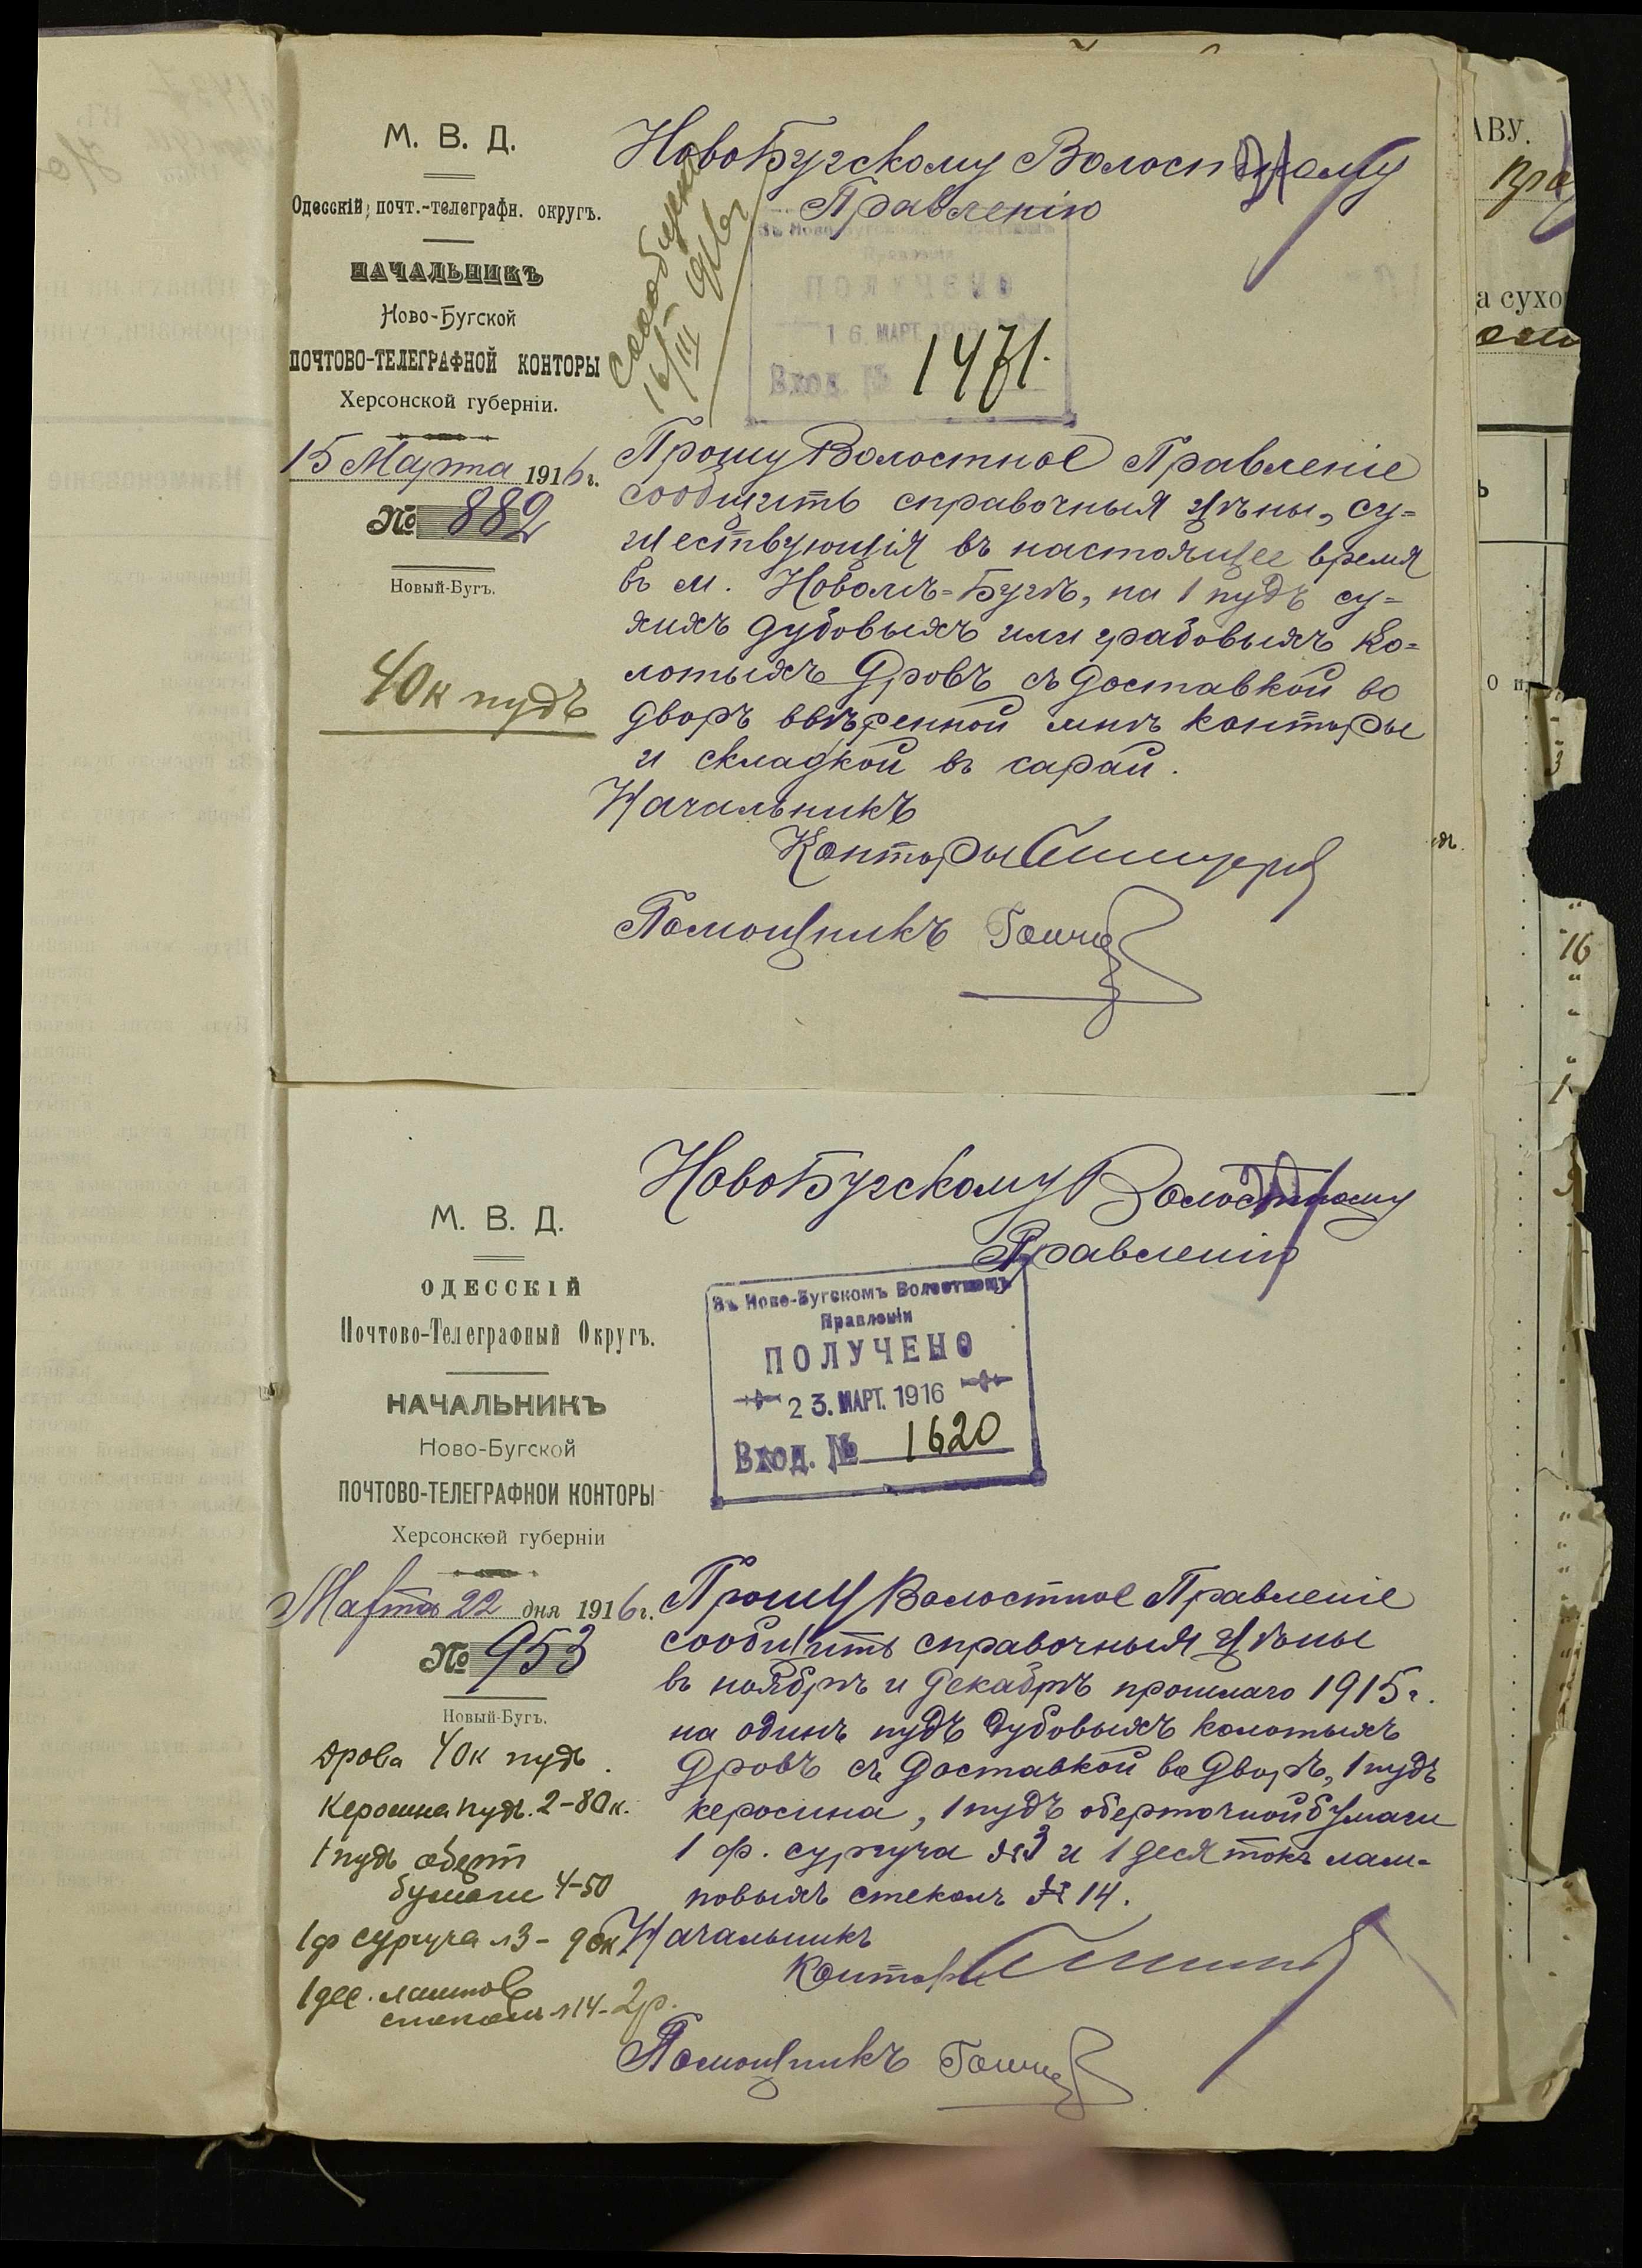 М. В. Д.
Одесскій почт.-телеграфн. округъ.
НАЧАЛЬНИКЪ
Ново-Бугской
ПОЧТОВО-ТЕЛЕГРАФНОЙ КОНТОРЫ
Херсонской губерніи.
15 Марта 1916 г.
№ 882
Новый-Бугъ.
40 к пудъ
НовоБугскому Волостному
Правленію
Сообщено
16/III 916 г
Въ Ново-Бугскомъ Волостномъ
Правленіи
ПОЛУЧЕНО
16. МАРТ. 1916
Вход. № 1471.
Прошу Волостное Правленіе
сообщить справочныя цѣны, су=
ществующія въ настоящее время
въ м. Новомъ=Бугѣ, на 1 пудъ су=
хихъ дубовыхъ или грабовыхъ ко=
лотыхъ дровъ съ доставкой во
дворъ ввѣренной мнѣ конторы
и складкой въ сарай.
Начальникъ
Конторы
Помощникъ
М. В. Д.
ОДЕССКІЙ
Почтово-Телеграфный Округъ.
НАЧАЛЬНИКЪ
Ново-Бугской
ПОЧТОВО-ТЕЛЕГРАФНОЙ КОНТОРЫ
Херсонской губерніи
Марта 22 дня 1916 г.
№ 953
Новый-Бугъ.
Дрова 40 к пудъ.
Керосина пудъ. 2-80 к.
1 пудъ оберт
бумаги 4-50
1 ф сургуча №3 - 90к
1 дес. лампов
стеколъ №14 - 2р.
НовоБугскому Волостному
Правленію
Въ Ново-Бугскомъ Волостномъ
Правленіи
ПОЛУЧЕНО
23. МАРТ. 1916
Вход. № 1620
Прошу Волостное Правленіе
сообщить справочныя цѣны
въ ноябрѣ и декабрѣ прошлаго 1915 г.
на одинъ пудъ дубовыхъ колотыхъ
дровъ съ доставкой во дворъ, 1 пудъ
керосина, 1 пудъ оберточной бумаги
1 ф. сургуча №3 и 1 десятокъ лам-
повыхъ стеколъ № 14.
Начальникъ
Конторы
Помощникъ